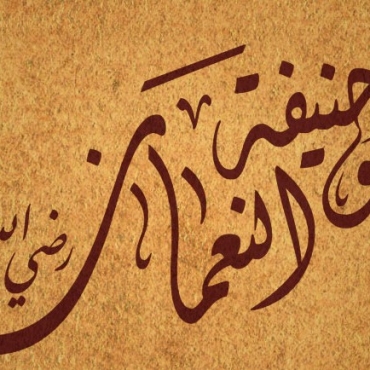 حنيفة
النعمان
رضي